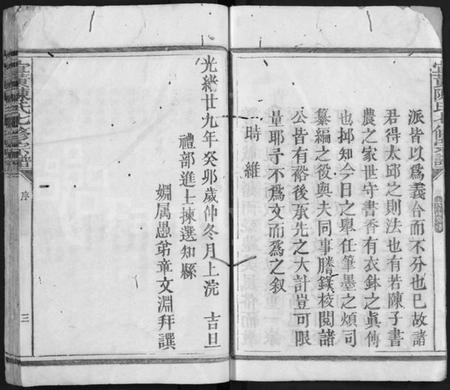 宜黃陳氏七修宗譜
派皆以為義合而不分也已故諸
君得太邱之則法也有若陳子書
農之家世守書香有衣缽之真傳
也抑知今日之舉任筆墨之煩司
纂編之役與夫同事謄鏷校閱諸
公皆有裕後承先之大計豈可限
量耶守不為文而為之叙
時維
光緒廿九年癸卯歲仲冬月上浣 吉旦
禮部進士揀選知縣
姻属愚弟章文淵拜譔
宜黃陳氏七修宗譜
序
三